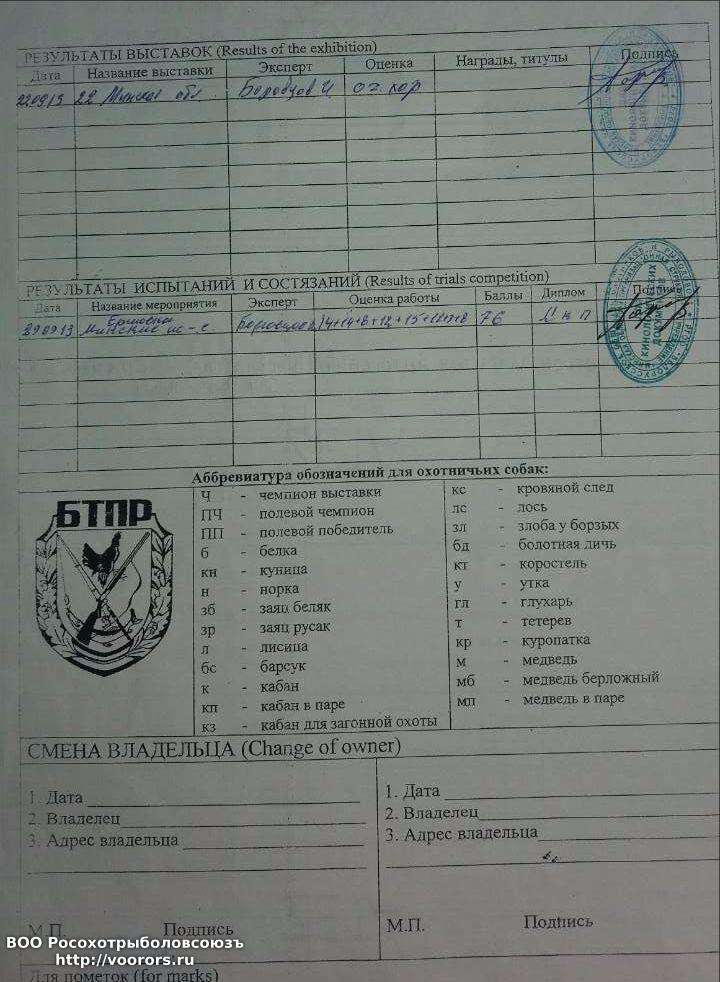 РЕЗУЛЬТАТЫ ВЫСТАВОК (Results of the exhibition)
Дата Название выставки Эксперт Оценка Награды, титулы Подпись
220913 22 Минская обл Боровцов И оч. хор
РЕЗУЛЬТАТЫ ИСПЫТАНИЙ И СОСТЯЗАНИЙ (Results of trials competition)
Дата Название мероприятия Эксперт Оценка работы Баллы Диплом Подпись
290913 76
Аббревиатура обозначений для охотничьих собак:
БТПР
Ч - чемпион выставки
ПЧ - полевой чемпион
ПП - полевой победитель
б - белка
кн - куница
н - норка
зб - заяц беляк
зр - заяц русак
л - лисица
бс - барсук
к - кабан
кп - кабан в паре
кз - кабан для загонной охоты
кс - кровяной след
лс - лось
зл - злоба у борзых
бд - болотная дичь
кт - коростель
у - утка
гл - глухарь
т - тетерев
кр - куропатка
м - медведь
мб - медведь берложный
мп - медведь в паре
СМЕНА ВЛАДЕЛЬЦА (Change of owner)
1. Дата
2. Владелец
3. Адрес владельца
М.П. Подпись
1. Дата
2. Владелец
3. Адрес владельца
М.П. Подпись
Для пометок (for marks)
ВОО Росохотрыболовсоюзъ
http://voorors.ru